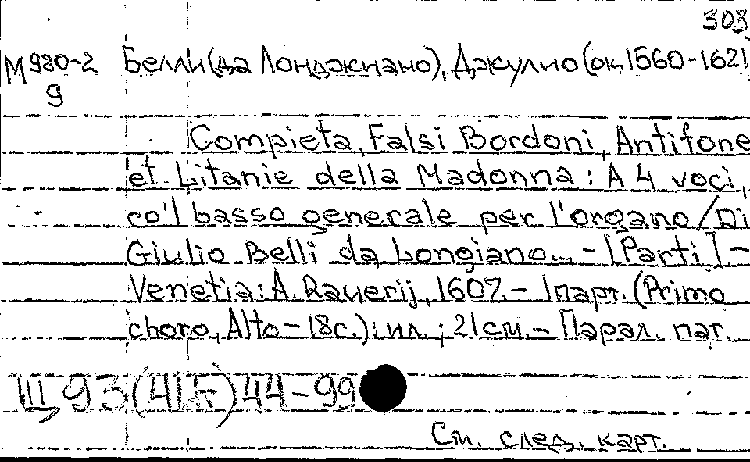 303
М 980-2 Белли (да Лонджиано), Джулио (ок. 1560-1621
9
Compieta, Falsi Bordoni, Antifone
et Litanie della Madonna: A 4 voci,
co'l basso generale per l'organo/Di
Giulio Belli da Longiano... - [Parti] -
Venetia: A. Rauerij, 1607. - 1 парт. (Primo
choro, Alto - 18 с.): ил.; 21 см. - Парал. паг.
Щ 93(4Ит)44-99
См. след. карт.